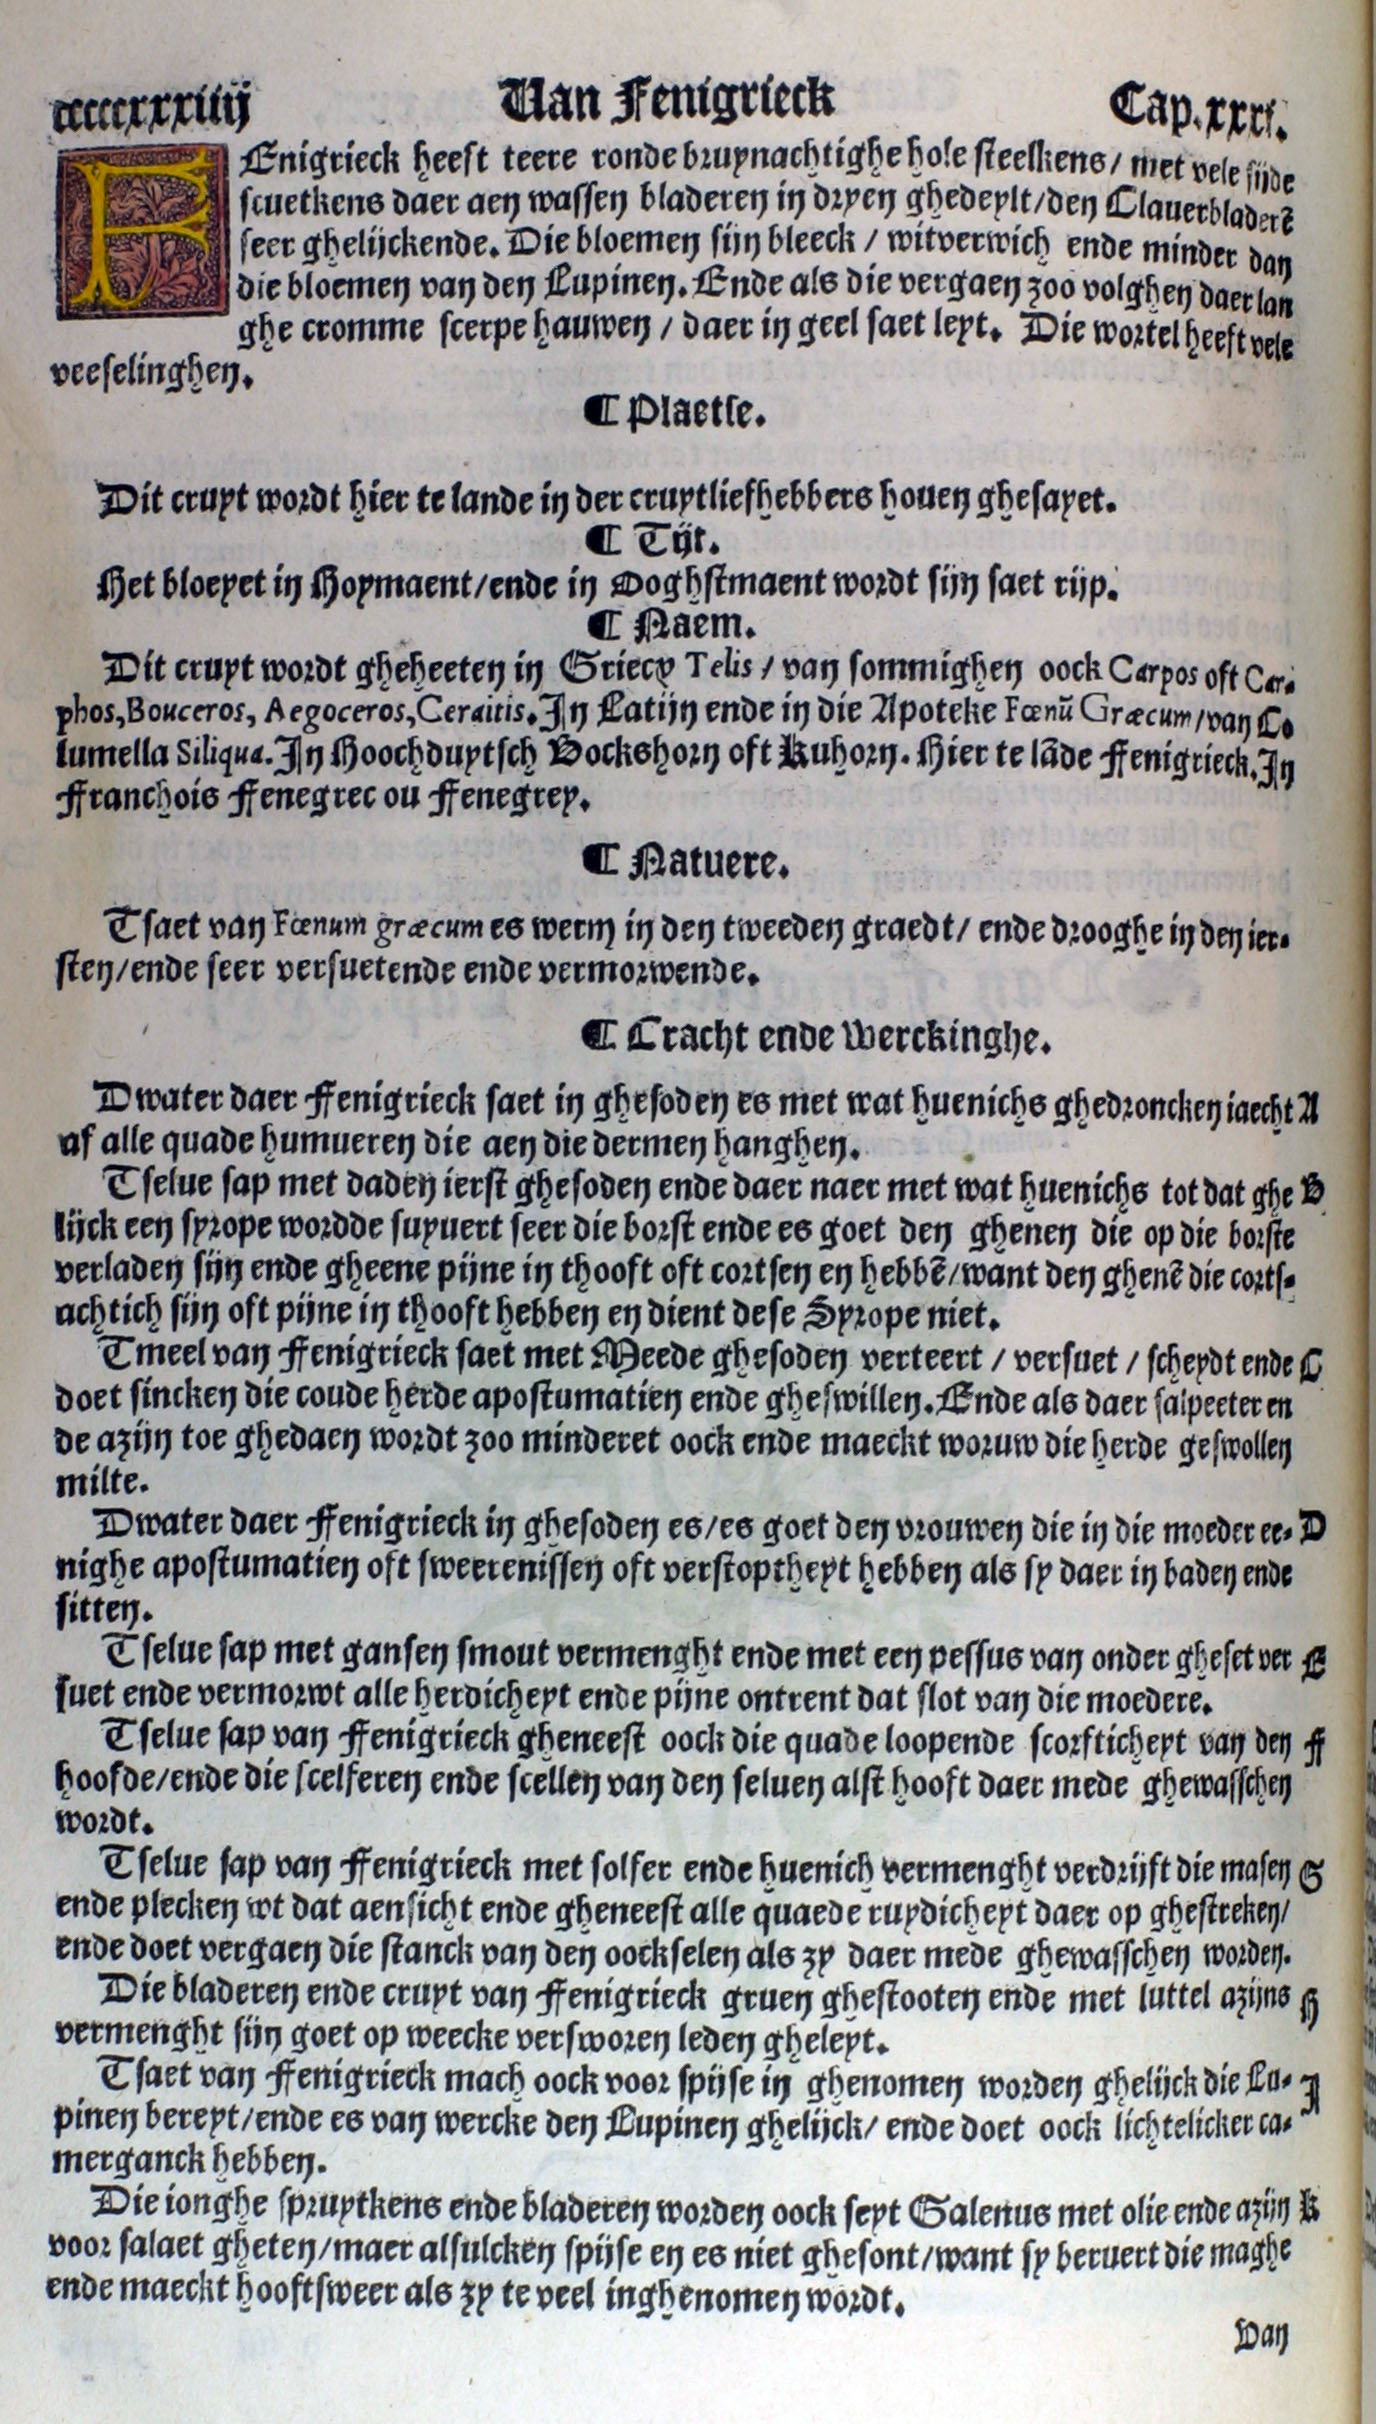 ccccxxxiiij Van Fenigrieck Cap.xxxi.
FEnigrieck heeft teere ronde bruynachtighe hole steelkens/ met vele sijde
scuetkens daer aen wassen bladeren in dryen ghedeylt/den Clauerbladerē
seer ghelijckende. Die bloemen sijn bleeck / witverwich ende minder dan
die bloemen van den Lupinen. Ende als die vergaen zoo volghen daer lan
ghe cromme scerpe hauwen / daer in geel saet leyt. Die wortel heeft vele
veeselinghen.
¶ Plaetse.
Dit cruyt wordt hier te lande in der cruytliefhebbers houen ghesayet.
¶ Tijt.
Het bloeyet in Hoymaent/ende in Ooghstmaent wordt sijn saet rijp.
¶ Naem.
Dit cruyt wordt gheheeten in Griecx Telis / van sommighen oock Carpos oft Car-
phos, Bouceros, Aegoceros, Ceraitis. In Latijn ende in die Apoteke Fœnū Græcum/van Co
lumella Siliqua. In Hoochduytsch Bockshorn oft Kuhorn. Hier te lāde Fenigrieck. In
Franchois Fenegrec ou Fenegrey.
¶ Natuere.
Tsaet van Fœnum græcum es werm in den tweeden graedt/ ende drooghe in den ier-
sten/ende seer versuetende ende vermorwende.
¶ Cracht ende Werckinghe.
Dwater daer Fenigrieck saet in ghesoden es met wat huenichs ghedroncken iaecht A
af alle quade humueren die aen die dermen hanghen.
Tselue sap met daden ierst ghesoden ende daer naer met wat huenichs tot dat ghe B
lijck een syrope wordde suyuert seer die borst ende es goet den ghenen die op die borste
verladen sijn ende gheene pijne in thooft oft cortsen en hebbē/want den ghenē die corts-
achtich sijn oft pijne in thooft hebben en dient dese Syrope niet.
Tmeel van Fenigrieck saet met Meede ghesoden verteert / versuet / scheydt ende C
doet sincken die coude herde apostumatien ende gheswillen. Ende als daer salpeeter en
de azijn toe ghedaen wordt zoo minderet oock ende maeckt woruw die herde geswollen
milte.
Dwater daer Fenigrieck in ghesoden es/es goet den vrouwen die in die moeder ee- D
nighe apostumatien oft sweerenissen oft verstoptheyt hebben als sy daer in baden ende
sitten.
Tselue sap met gansen smout vermenght ende met een pessus van onder gheset ver E
suet ende vermorwt alle herdicheyt ende pijne ontrent dat slot van die moedere.
Tselue sap van Fenigrieck gheneest oock die quade loopende scorfticheyt van den F
hoofde/ende die scelferen ende scellen van den seluen alst hooft daer mede ghewasschen
wordt.
Tselue sap van Fenigrieck met solfer ende huenich vermenght verdrijft die masen G
ende plecken wt dat aensicht ende gheneest alle quaede ruydicheyt daer op ghestreken/
ende doet vergaen die stanck van den oockselen als zy daer mede ghewasschen worden.
Die bladeren ende cruyt van Fenigrieck gruen ghestooten ende met luttel azijns H
vermenght sijn goet op weecke versworen leden gheleyt.
Tsaet van Fenigrieck mach oock voor spijse in ghenomen worden ghelijck die Lu- I
pinen bereyt/ende es van wercke den Lupinen ghelijck/ ende doet oock lichtelicker ca-
merganck hebben.
Die ionghe spruytkens ende bladeren worden oock seyt Galenus met olie ende azijn K
voor salaet gheten/maer alsulcken spijse en es niet ghesont/want sy beruert die maghe
ende maeckt hooftsweer als zy te veel inghenomen wordt.
Van